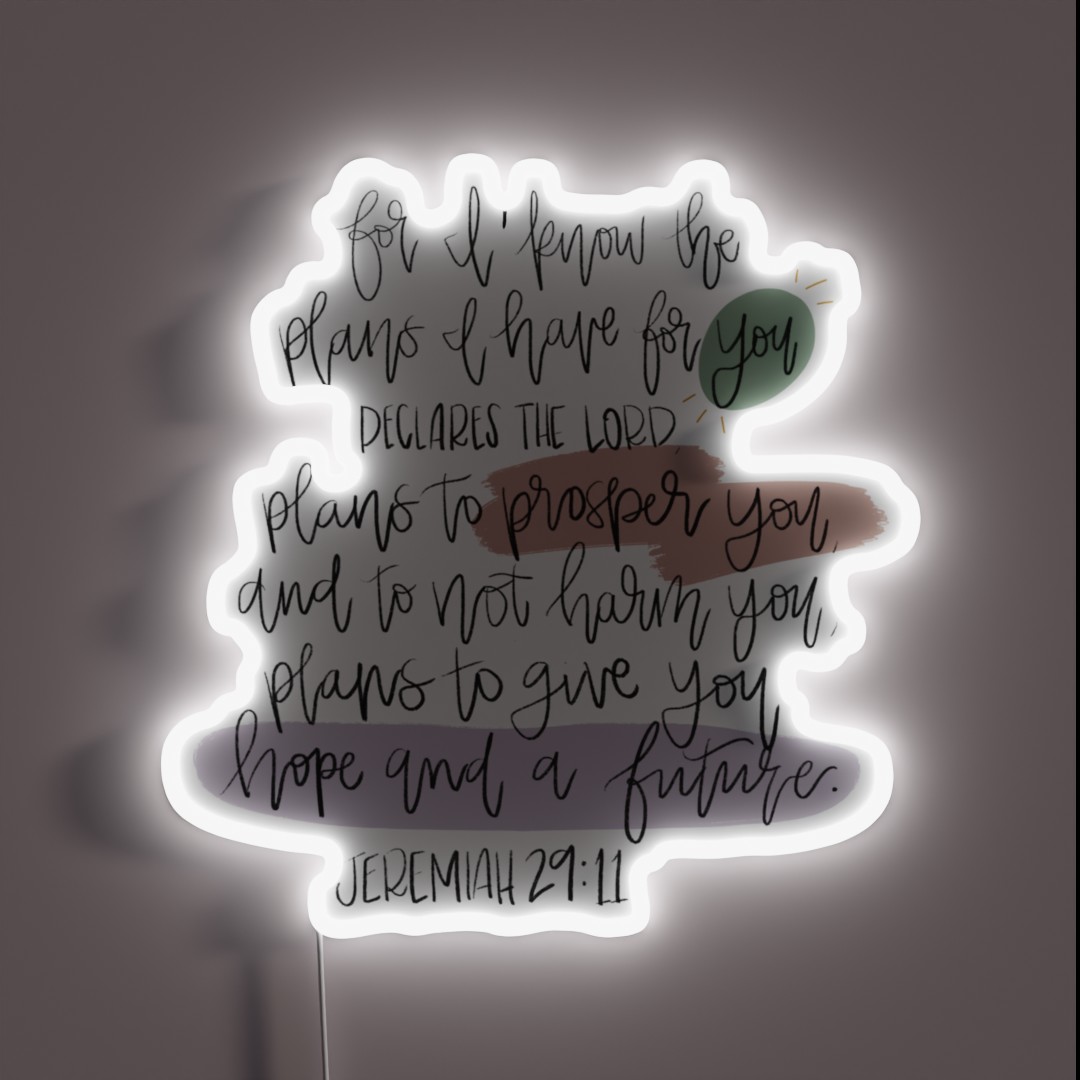 for I know the
plans I have for you
DECLARES THE LORD,
plans to prosper you,
and to not harm you,
plans to give you
hope and a future.
JEREMIAH 29:11